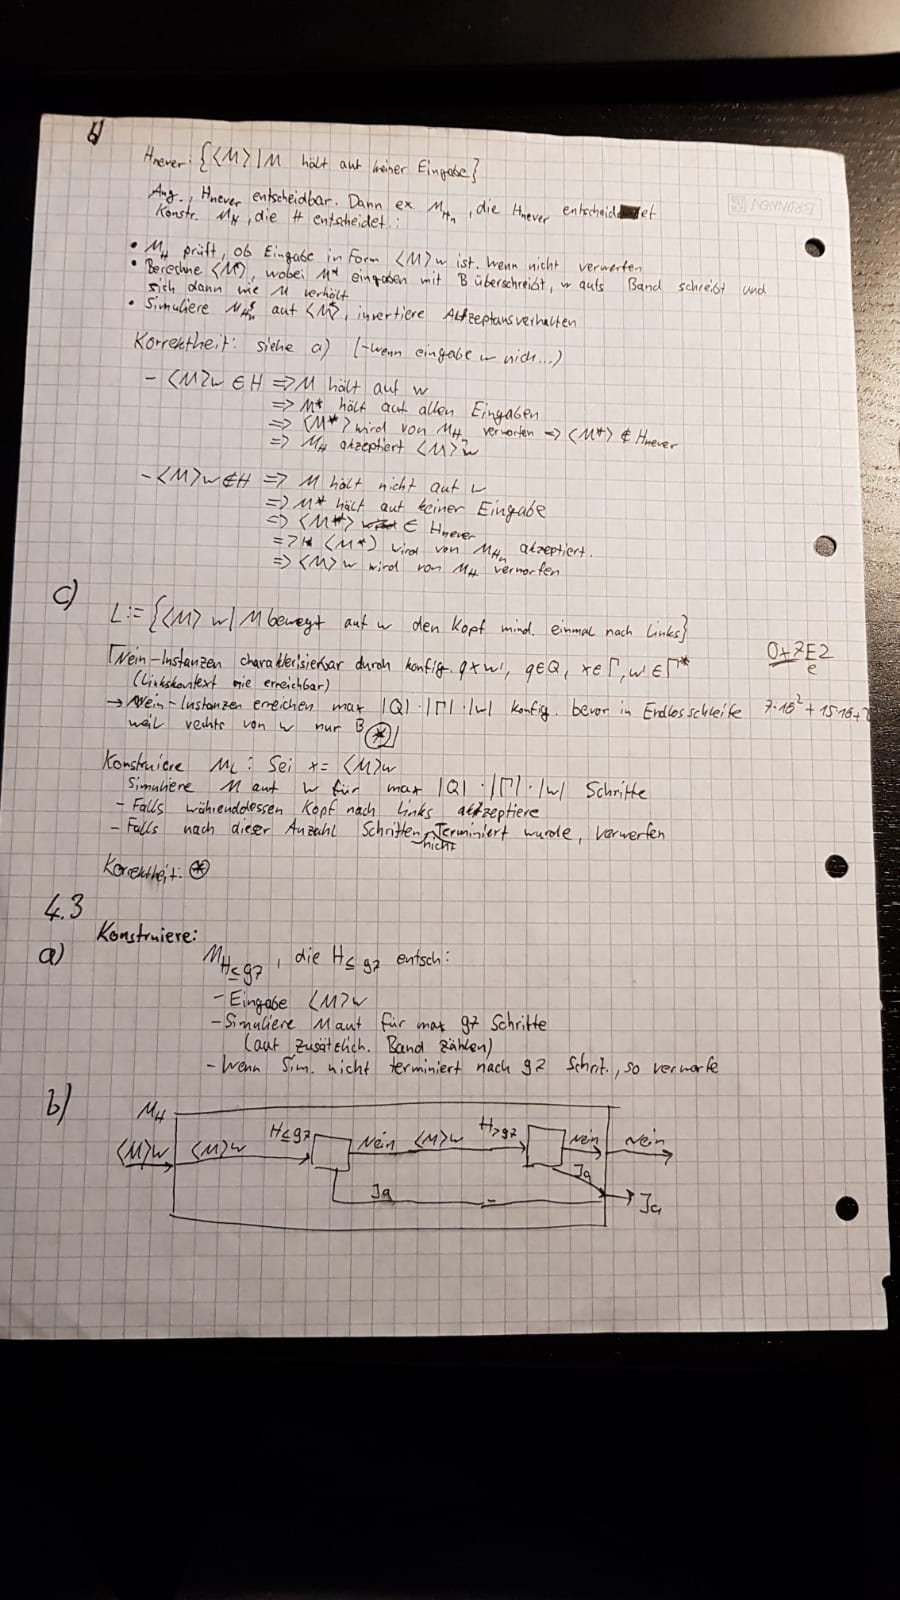 b)
H_never: {⟨M⟩ | M hält auf keiner Eingabe}
Ang., H_never entscheidbar. Dann ex. M_Hn, die H_never entscheidet
Konstr. M_H, die H entscheidet:
• M_H prüft, ob Eingabe in Form ⟨M⟩w ist. Wenn nicht verwerfen
• Berechne ⟨M*⟩, wobei M* eingaben mit B überschreibt, w aufs Band schreibt und
sich dann wie M verhält
• Simuliere M_Hn auf ⟨M*⟩, invertiere Akzeptansverhalten
Korrektheit: siehe a) (-wenn eingabe w nich...)
- ⟨M⟩w ∈ H ⇒ M hält auf w
⇒ M* hält auf allen Eingaben
⇒ ⟨M*⟩ wird von M_Hn verworfen ⇒ ⟨M*⟩ ∉ H_never
⇒ M_H akzeptiert ⟨M⟩w
- ⟨M⟩w ∉ H ⇒ M hält nicht auf w
⇒ M* hält auf keiner Eingabe
⇒ ⟨M*⟩ ∈ H_never
⇒ ⟨M*⟩ wird von M_Hn akzeptiert.
⇒ ⟨M⟩w wird von M_H verworfen
c)
L := {⟨M⟩ w | M bewegt auf w den Kopf mind. einmal nach Links}
⌈Nein-Instanzen charakterisierbar durch konfig. qxw', q∈Q, x∈Γ, w∈Γ*
0x7E2
e
(Linkskontext nie erreichbar)
→ Nein-Instanzen erreichen max |Q|·|Γ|·|w| konfig. bevor in Endlosschleife
7·16² + 15·16+2
weil rechts von w nur B (*)⌋
Konstruiere M_L: Sei x = ⟨M⟩w
Simuliere M auf w für max |Q|·|Γ|·|w| Schritte
- Falls währenddessen Kopf nach Links akzeptiere
- Falls nach dieser Anzahl Schritten nicht Terminiert wurde, verwerfen
Korrektheit: (*)
4.3
Konstruiere:
a) M_H≤97, die H≤97 entsch:
- Eingabe ⟨M⟩w
- Simuliere M auf für max 97 Schritte
(auf zusätzlich. Band zählen)
- Wenn Sim. nicht terminiert nach 97 Schrit., so verwerfe
b) M_H
⟨M⟩w ⟨M⟩w H≤97 Nein ⟨M⟩w H>97 Nein Nein
Ja Ja Ja